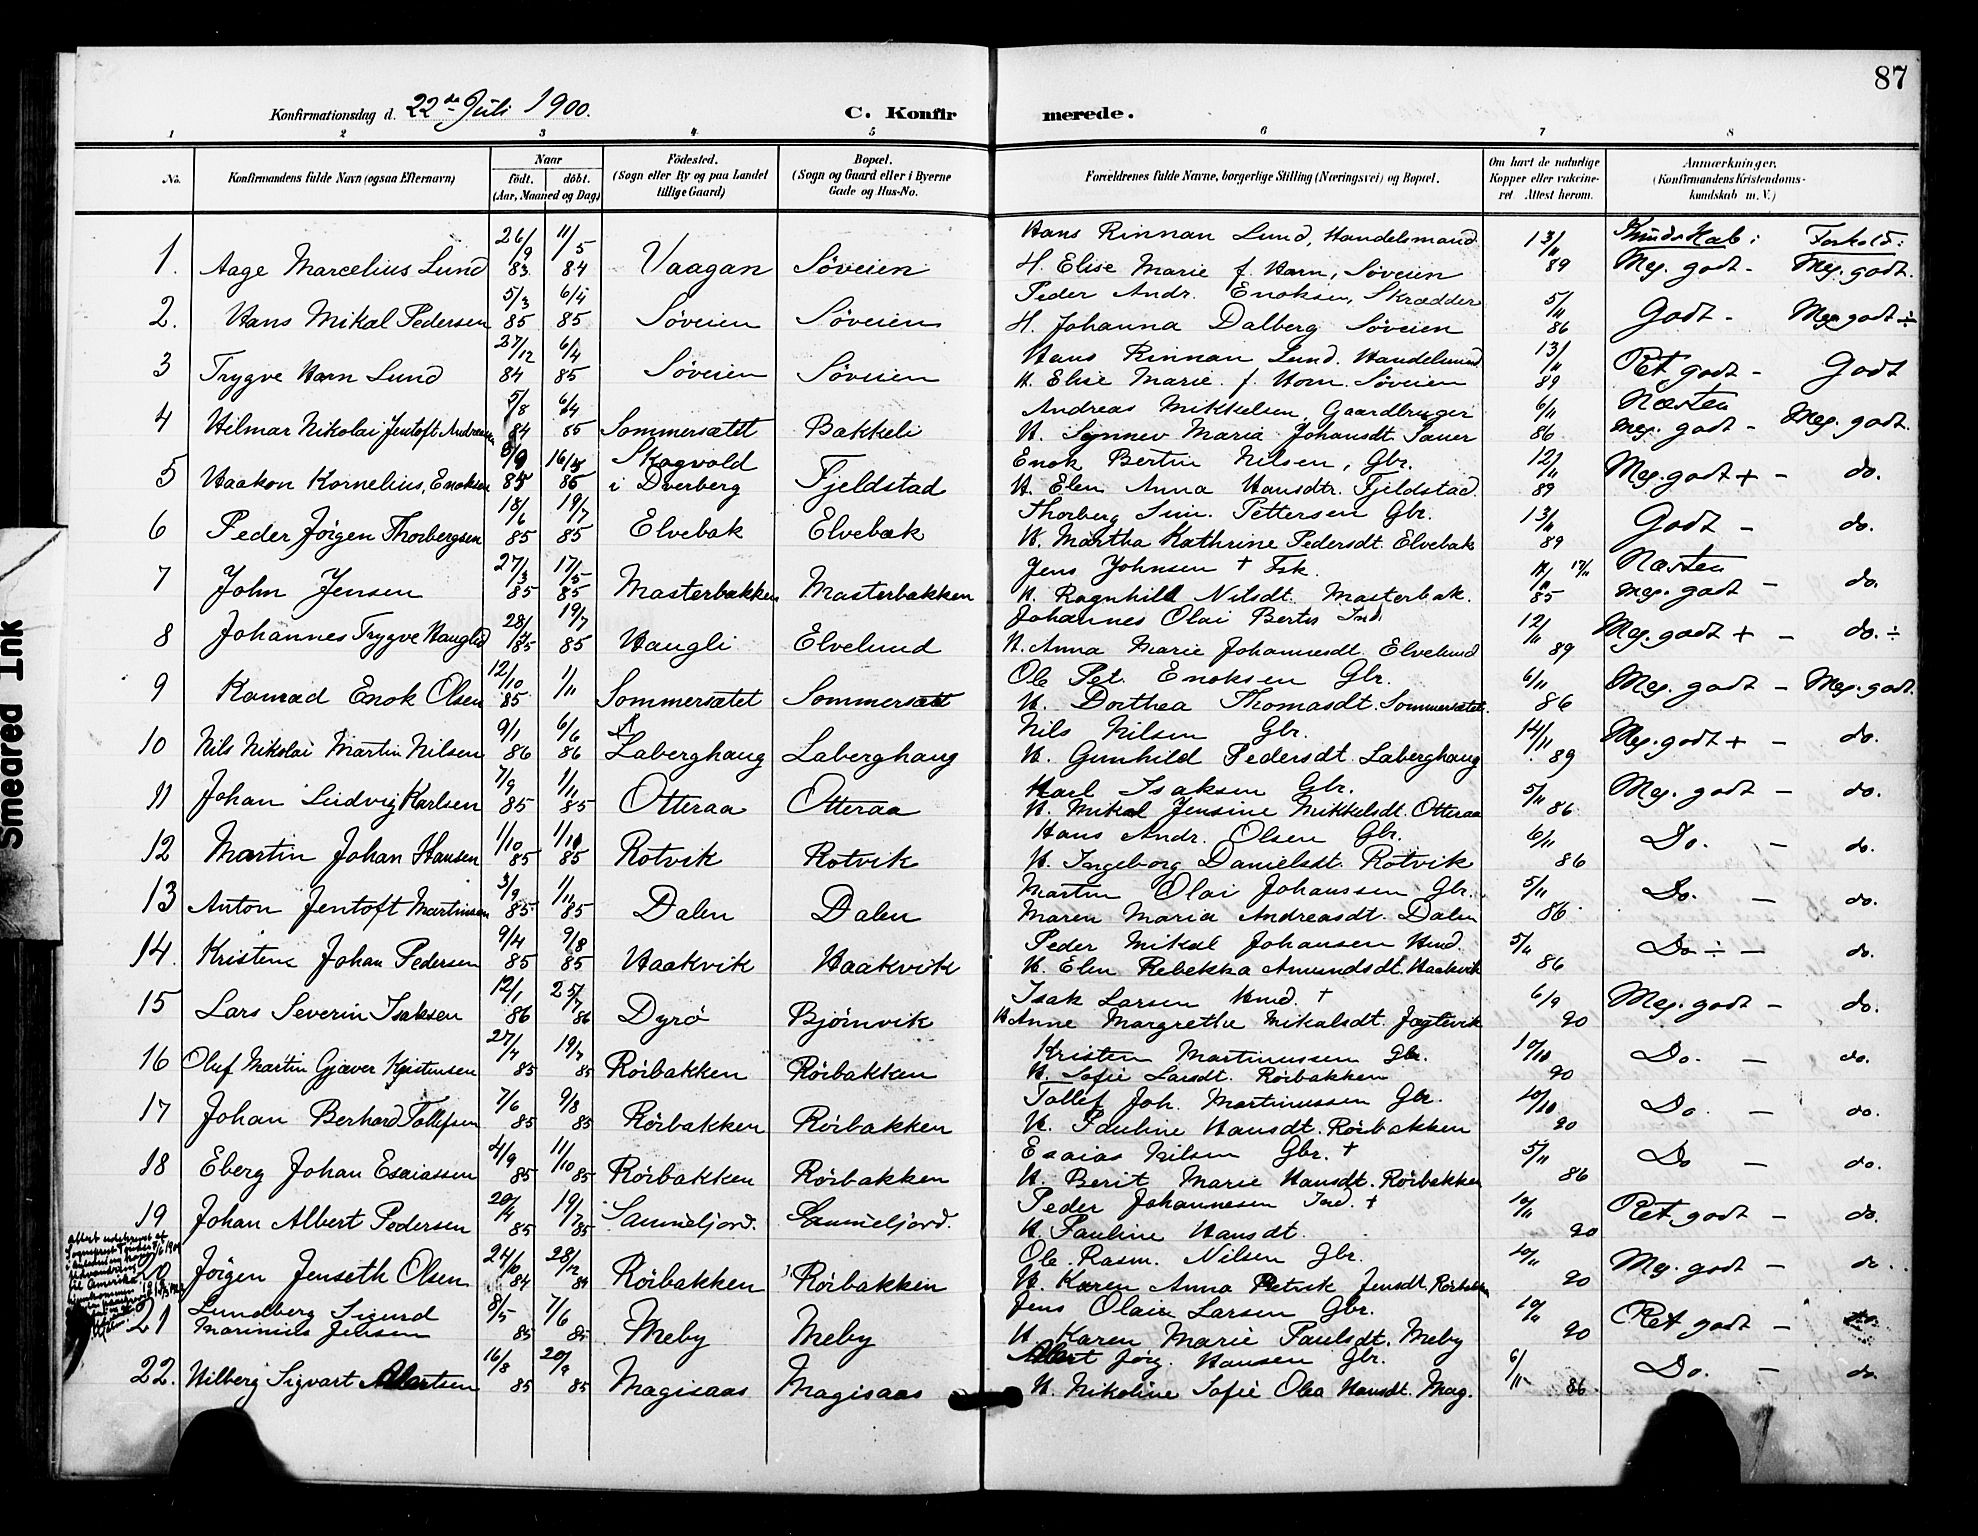 87
Konfirmationsdag d. 22de Juli 1900.
C. Konfirmerede.
1 2 3 4 5 6 7 8
No.
Konfirmandens fulde Navn (ogsaa Efternavn)
Naar
födt. döbt.
(Aar, Maaned og Dag)
Födested.
(Sogn eller By og paa Landet
tillige Gaard)
Bopæl.
(Sogn og Gaard eller i Byerne
Gade og Hus-No.
Forældrenes fulde Navne, borgerlige Stilling (Næringsvei) og Bopæl.
Om havt de naturlige
Kopper eller vakcine-
ret Attest herom.
Anmærkninger.
(Konfirmandens Kristendoms-
kundskab m. V.)
Kundskab: Forhold:
1. Aage Marcelius Lund 26/9 83. 11/5 84 Vaagan Søveien Hans Rinnan Lund, Handelsmand 13/11 89 Meg. godt - Meg. godt.
H. Elise Marie f. Harn, Søveien
2. Hans Mikal Pedersen 5/3 85 6/4 85 Søveien Søveien Peder Andr. Enoksen, Skrædder 5/11 86 Godt - Meg godt ÷
H. Johanna Dalberg Søveien
3 Trygve Harn Lund 27/12 84 6/4 85 Søveien Søveien Hans Rinnan Lund. Handelsmand 13/11 89 Ret godt - Godt
H. Elise Marie f. Horn. Søveien
4 Hilmar Nikolai Jentoft Andreasen 5/8 84 6/4 85 Sommersætet Bakkeli Andreas Mikkelsen, Gaardbruger 6/11 86 Næsten meg. godt - Meg. godt.
H. Synnev Maria Johansdt. Sauer
5 Haakon Kornelius, Enoksen 85 16/5 85 Skogvold i Dverberg Fjeldstad Enok Bertin Nilsen, Gbr. 12/11 89 Meg. godt + - do.
H. Elen Anna Hansdtr. Fjeldstad.
6 Peder Jørgen Thorbergsen 18/6 85 19/7 85 Elvebak Elvebæk Thorberg Sim. Pettersen Gbr. 13/11 89 Godt - do.
H. Martha Kathrine Pedersdt. Elvebak
7 John Jensen 27/3 85 17/5 85 Masterbakken Masterbakken Jens Johnsen † Fsk. 85 Næsten meg. godt - do.
H. Ragnhild Nilsdt. Masterbak.
8 Johannes Trygve Haugli 28/ 85 19/7 85 Haugli Elvelund Johannes Olai Berts Ind. 12/11 89 Meg. godt + - do. ÷
H. Anna Marie Johannesdt. Elvelund
9 Konrad Enok Olsen 12/10 85 1/11 Sommersætet Sommersæt Ole Pet. Enoksen Gbr. 6/11 86 Meg. godt - Meg. godt.
H. Dorthea Thomasdt. Sommersætet.
10 Nils Nikolai Martin Nilsen 9/1 86 6/6 86 Laberghaug Laberghaug Nils Nilsen Gbr. 14/11 89 Meg. godt + - do.
H. Gunhild Pedersdt. Laberghaug
11 Johan Ludvig Karlsen 7/9 85 1/11 85 Otteraa Otteraa Karl Isaksen Gbr. 5/11 86 Meg. godt - do.
H. Mikal Jensine Mikkelsdt. Otteraa
12 Martin Johan Hansen 1/10 85 1/10 85 Rotvik Rotvik Hans Andr. Olsen Gbr. 6/11 86 Do. - do.
H. Ingeborg Danielsdt. Rotvik
13 Anton Jentoft Martinsen 3/9 85 1/11 85 Dalen Dalen Martin Olai Johanssen Gbr. 5/11 86 Do. - do.
Maren Maria Andreasdt. Dalen
14. Kristen Johan Pedersen 9/4 85 9/8 85 Haakvik Haakvik Peder Mikal Johansen Hmd. 5/11 86 Do ÷ - do.
H. Elen Rebekka Amundsdt. Haakvik
15 Lars Severin Isaksen 12/1 86 25/7 86 Dyrø Bjørnvik Isak Larsen Hmd. † 6/9 90 Meg. godt - do.
H Anne Margrethe Mikalsdt. Jægtevik
16 Oluf Martin Gjæver Kristensen 27/4 85 19/7 85 Röibakken Röibakken Kristen Martinussen Gbr. 10/10 90 Do. - do.
H. Sofie Larsdt. Röibakken
17 Johan Berhard Tollefsen 7/6 85 9/8 85 Röibakken Röibakken Tollef Joh. Martinussen Gbr. 10/10 90 Do. - do.
H. Pauline Hansdt. Röibakken
18 Eberg Johan Esaiassen 4/9 85 11/10 85 Röibakken Röibakken Esaias Nilsen Gbr. † 5/11 86 Do - do.
H. Berit Marie Hansdt. Röibakken
19 Johan Albert Pedersen 20/4 85 19/7 85 Sammeljord. Sammeljord. Peder Johannesen Ind. † 10/11 90 Ret godt - do.
H. Pauline Hansdt.
20 Jörgen Jenseth Olsen 24/6 84 28/12 84 Röibakken Röibakken Ole Rasm. Nilsen Gbr. 10/11 90 Meg. godt - do.
H. Karen Anna Petrik Jensdt. Röibakken
21 Lundberg Sigurd Marinius Jensen 8/5 85 7/6 85 Meby Meby Jens Olaus Larsen Gbr. 10/11 90 Ret godt - do.
H. Karen Marie Paulsdt. Meby
22. Hilberg Sigvart Albertsen 16/8 85 20/9 85 Magisaas Magisaas Albert Jörg. Hansen Gbr. 6/11 86 Do. - do.
H. Nikoline Sofie Olea Hansdt. Mag.
Attest udstedt af
Sogneprest
til Amerika
Smeared Ink